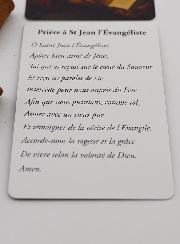 Prière à St Jean l'Évangéliste
Ô Saint Jean l'Évangéliste,
Apôtre bien-aimé de Jésus,
Toi qui as reçu sur le cœur du Sauveur
Et reçu ses paroles de vie
Intercède pour nous auprès de Lui
Afin que nous puissions, comme toi,
Aimer avec un cœur pur
Et témoigner de la vérité de l'Évangile.
Accorde-nous la sagesse et la grâce
De vivre selon la volonté de Dieu.
Amen.